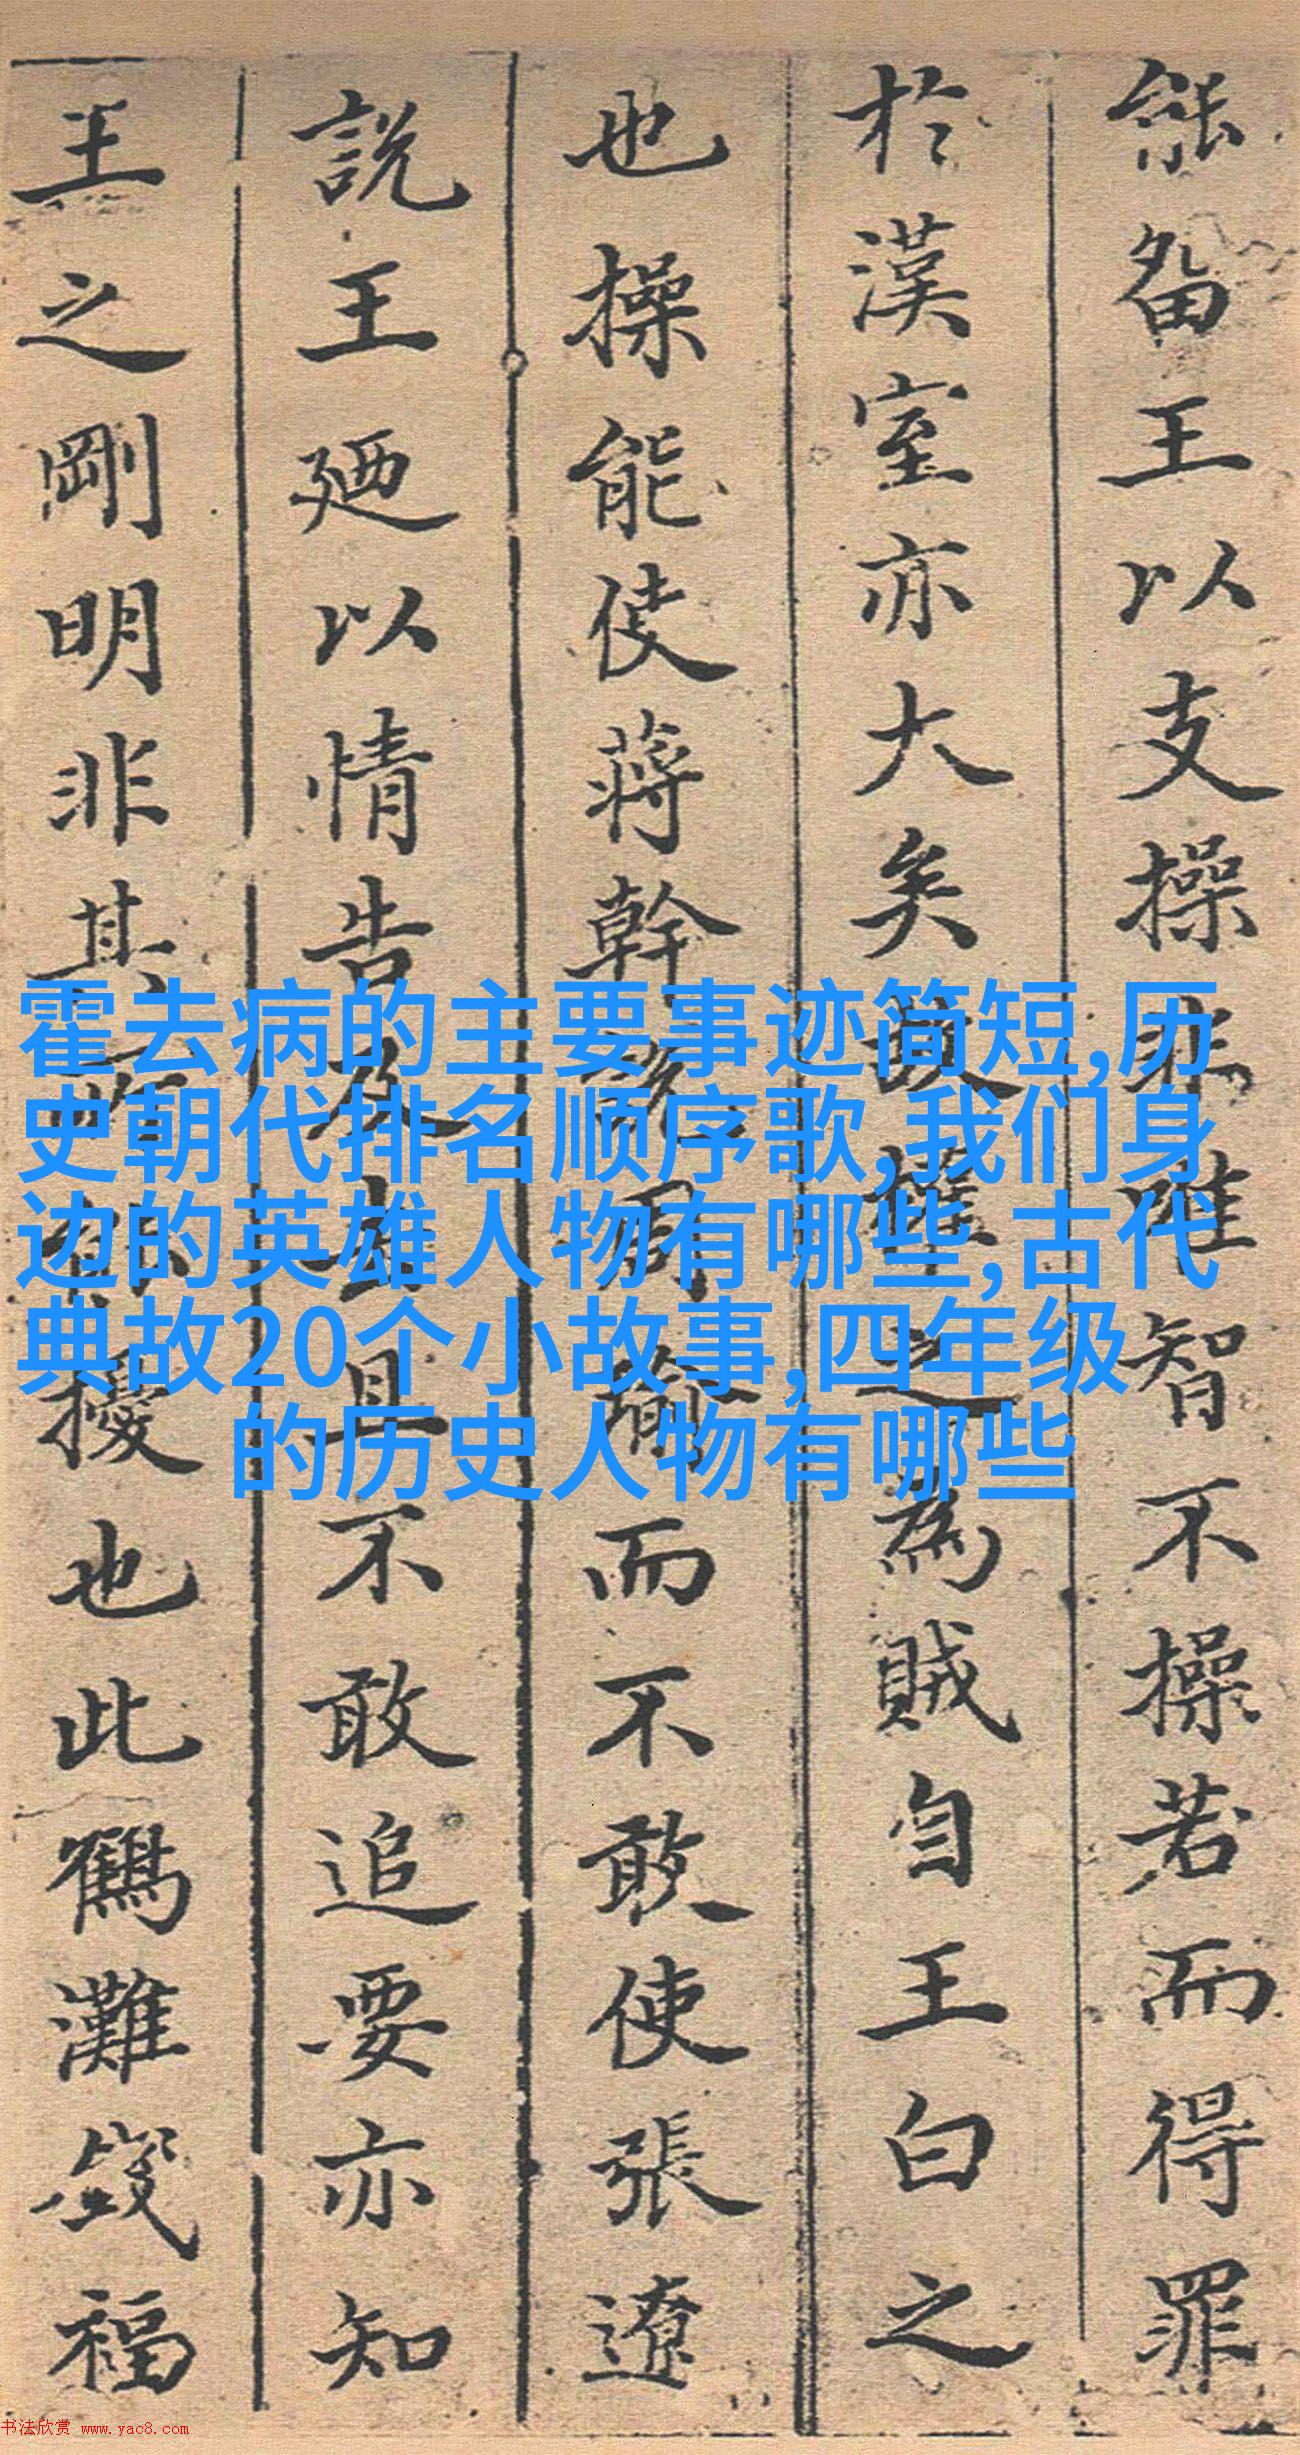 能畱王以支操非唯智不操若而得罪
於漢室亦大矣權之為賊自王白之
也操能使蔣幹說周瑜而不敢使張遼
說王廼以情告及去且不敢追要亦知
王之剛明非其擾也此鶴灘福
霍去病的主要事迹简短,历
史朝代排名顺序歌,我们身
边的英雄人物有哪些,古代
典故20个小故事,四年级
的历史人物有哪些
书法欣赏 www.yac8.com